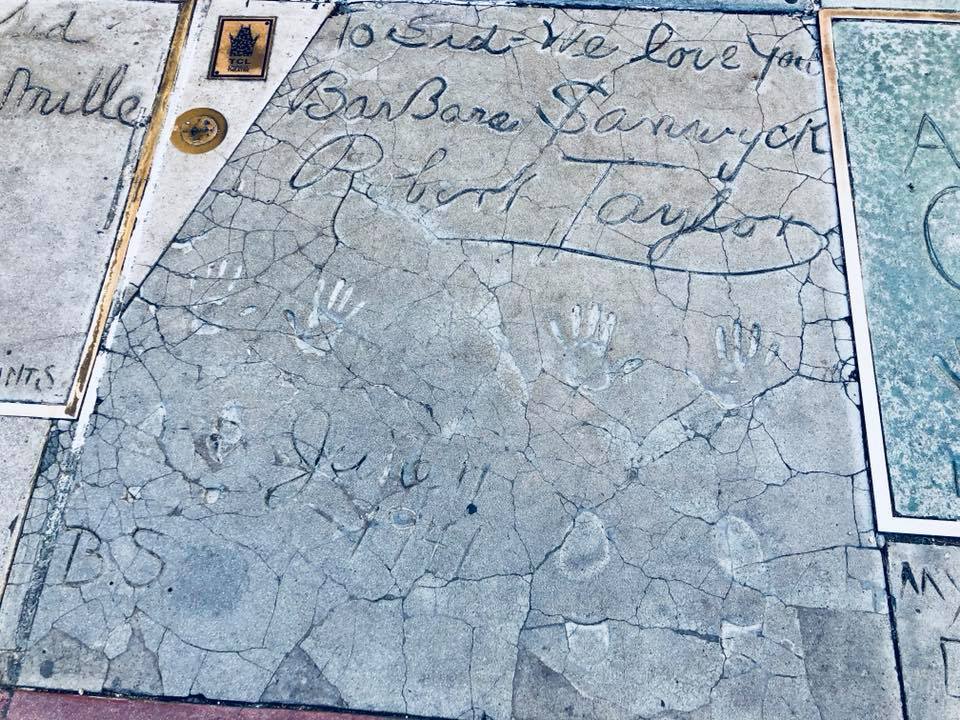 To Sid - We love you
BarBara Stanwyck
Robert Taylor
June 11
1941
BS
TCL
Mille
MY